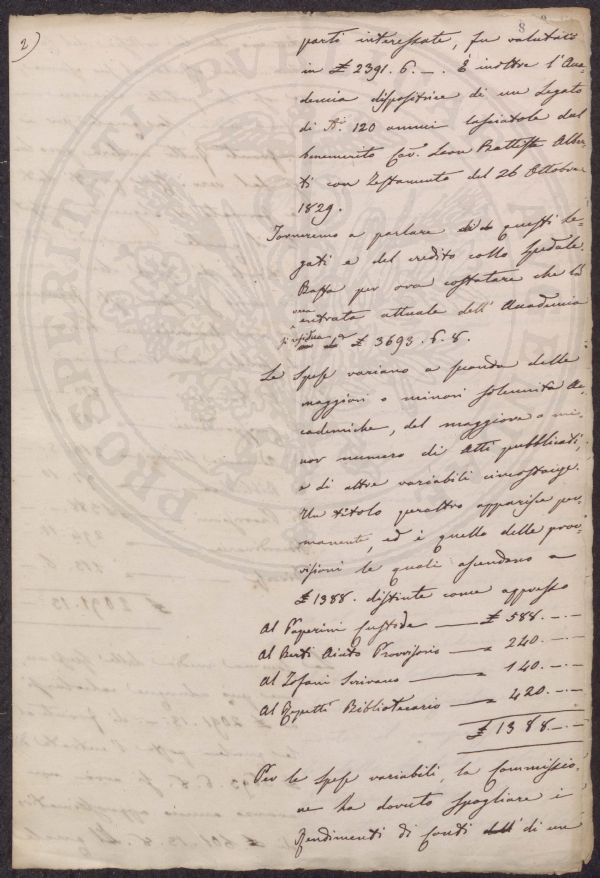 2)
8
parti interessate, fu valutato
in £ 2391. 6. —. È inoltre l'Acca-
demia dispositrice di un Legato
di 120 annui lasciatole dal
benemerito Cav.e Leon Battista Alber-
ti con Testamento del 26 Ottobre
1829.
Torneremo a parlare di questi le-
gati e del credito collo Spedale.
Basta per ora costatare che la
vera
entrata attuale dell'Accademia
si residua
£ 3693. 6. 8.
Le Spese variano a seconda delle
maggiori o minori solennità Ac-
cademiche, del maggiore o mi-
nor numero di Atti pubblicati,
e di altre variabili circostanze.
Un titolo peraltro apparisce per-
manente, ed è quello delle prov-
visioni le quali ascendono a
£ 1388. distinte come appresso
Al Paperini Custode — £ 588. —. —
Al Berti Aiuto Provvisorio — " 240. —. —
Al Tofani Scrivano — " 140. —. —
Al Repetti Bibliotecario — " 420. —. —
£ 1388. —. —
Per le Spese variabili, la Commissio-
ne ha dovuto spogliare i
Rendimenti di Conti dell' di un
PROSPERITATI PVBLICAE